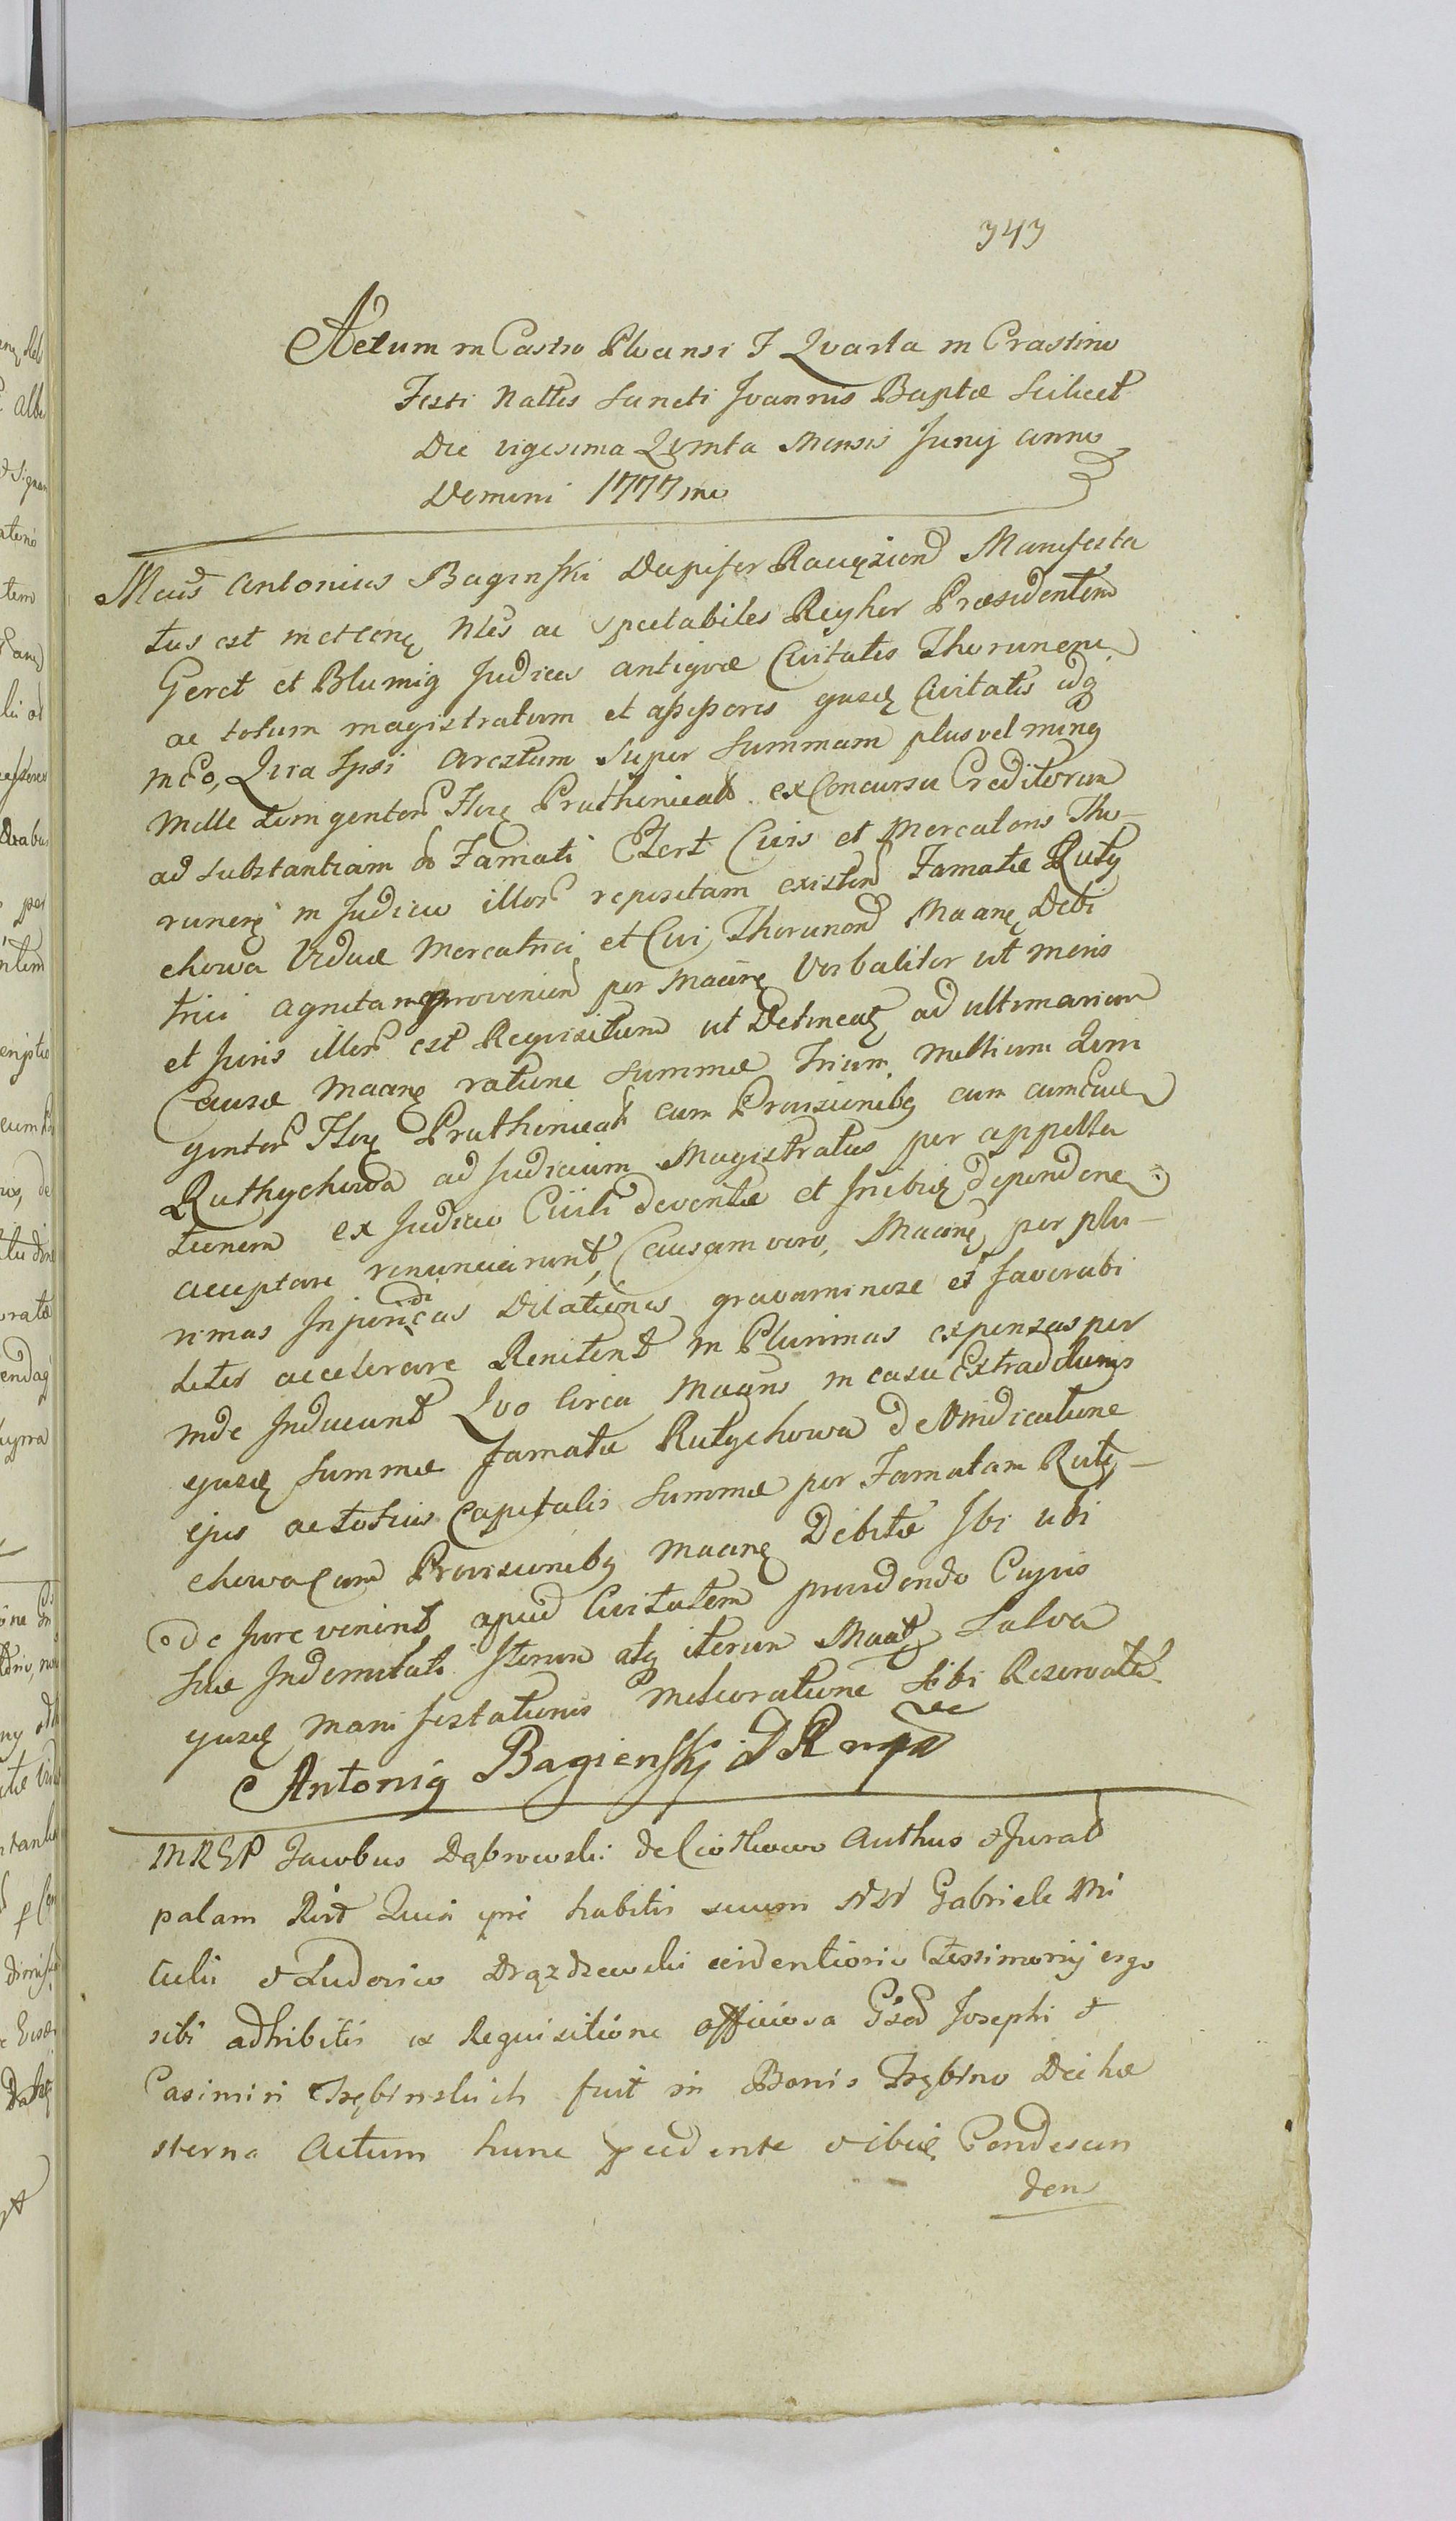 343
Actum in Castro Plocensi F Quarta in Crastino
Festi Nattis Sancti Joannis Baptæ Scilicet
Die vigesima Quinta Mensis Junij anno
Domini 1777mo
Mcus Antonius Bagiński Dapifer Raciązien Manifesta
tus est in et con Nles ac Spectabiles Reyher Præsidentem
Geret et Blumig Judices antiquæ Civitatis Thorunen
ac totum magistratum et assessores ejusd Civitatis idq
in eo, Quia Ipsi Arestum super Summam plus vel minq
Mille Quingentor Flor Pruthenical ex Concursu Creditorum
ad substantiam Famati Civis et Mercatoris Tho-
runen in Judicio illor repositam existen Famatæ Ruty
chowa Viduæ Mercatrici et Civi Thorunen Maane Debi
trici agnitam provenien per Maane Verbaliter ut moris
et juris illor est Requisitum ut Detineat ad ultimarium
Causæ Maane ratione Summæ Trium Millium Quin
gentor Flor Pruthenical cum Provisionibq cum
Ruthychowa ad Judicium Magistratus per appella
tionem ex Judicio Civili deventæ et Inibiq dependen
acceptare renunciarunt, Causam vero, Maane per plu-
rimas Injuridicas Dilationes gravaminose et favorabi
liter accelerare Renitent in Plurimas expensas per
inde Inducunt Quo circa Maans in casu Extraditionis
ejusd Summæ famatæ Rutychowa de Vindicatione
ejus ac totius Capitalis Summæ per Famatam Ruty-
chowa cum Provisionibq Maane Debitæ Ibi ubi
de jure venerit apud Civitatem providendo Cujus
suæ Indemnitati Iterum atq iterum Maatq Salva
ejusd Manifestationis Melioratione Sibi Reservata
Antoniq Bagienski D R mp
MRGP Jacobus Dąbrowski de Ciotkowo Authus et Jurat
palam Rect Quia ipse habitis secum NN Gabriele Mi
culii et Ludovico Drązdzewski evidentioris Testimonij ergo
sibi adhibitis ex Requisitione officiosa Gsod Josephi et
Casimiri Trębinskich fuit in Bonis Trębino Die he
sterna Actum hunc pcedente et ibiq Condescen
den